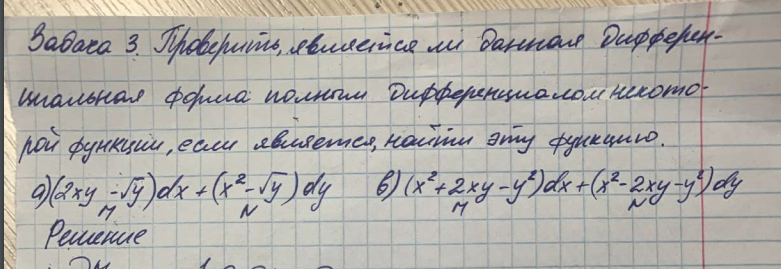 Задача 3. Проверить, является ли данная дифферен-
циальная форма полным дифференциалом некото-
рой функции, если является, найти эту функцию.
а) (2xy - √y)dx + (x² - √y)dy в) (x² + 2xy - y²)dx + (x² - 2xy - y²)dy
M N M N
Решение